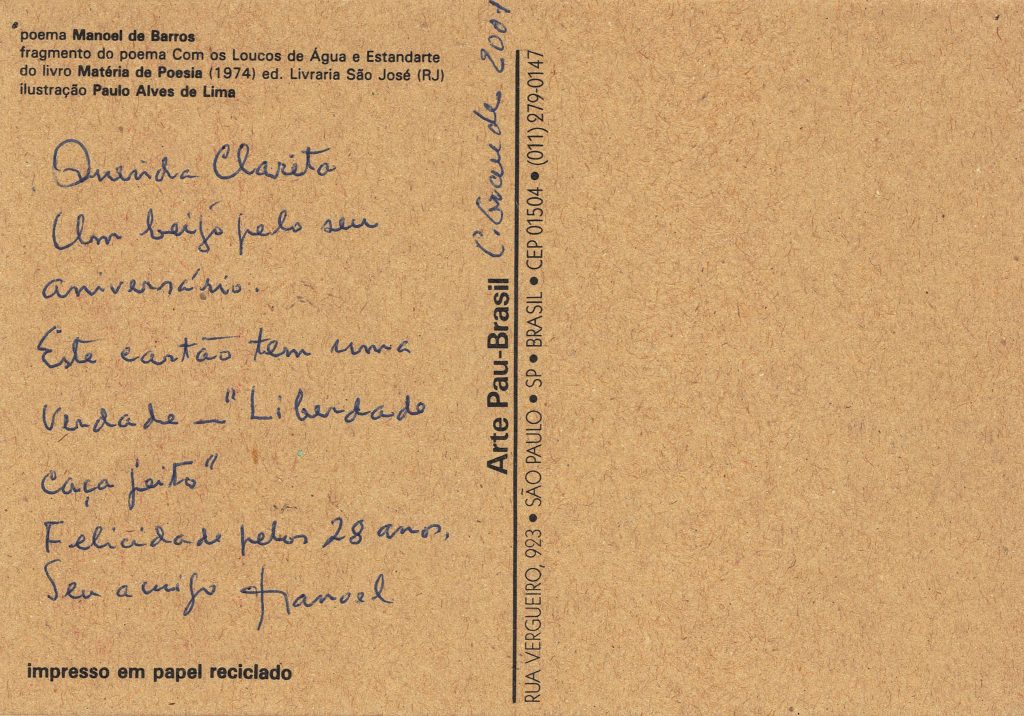 poema Manoel de Barros
fragmento do poema Com os Loucos de Água e Estandarte
do livro Matéria de Poesia (1974) ed. Livraria São José (RJ)
ilustração Paulo Alves de Lima
Querida Clarita
Um beijo pelo seu
aniversário.
Este cartão tem uma
verdade — "Liberdade
caça jeito"
Felicidade pelos 28 anos.
Seu amigo Manoel
impresso em papel reciclado
Arte Pau-Brasil
C. Grande 2001
RUA VERGUEIRO, 923 • SÃO PAULO • SP • BRASIL • CEP 01504 • (011) 279-0147